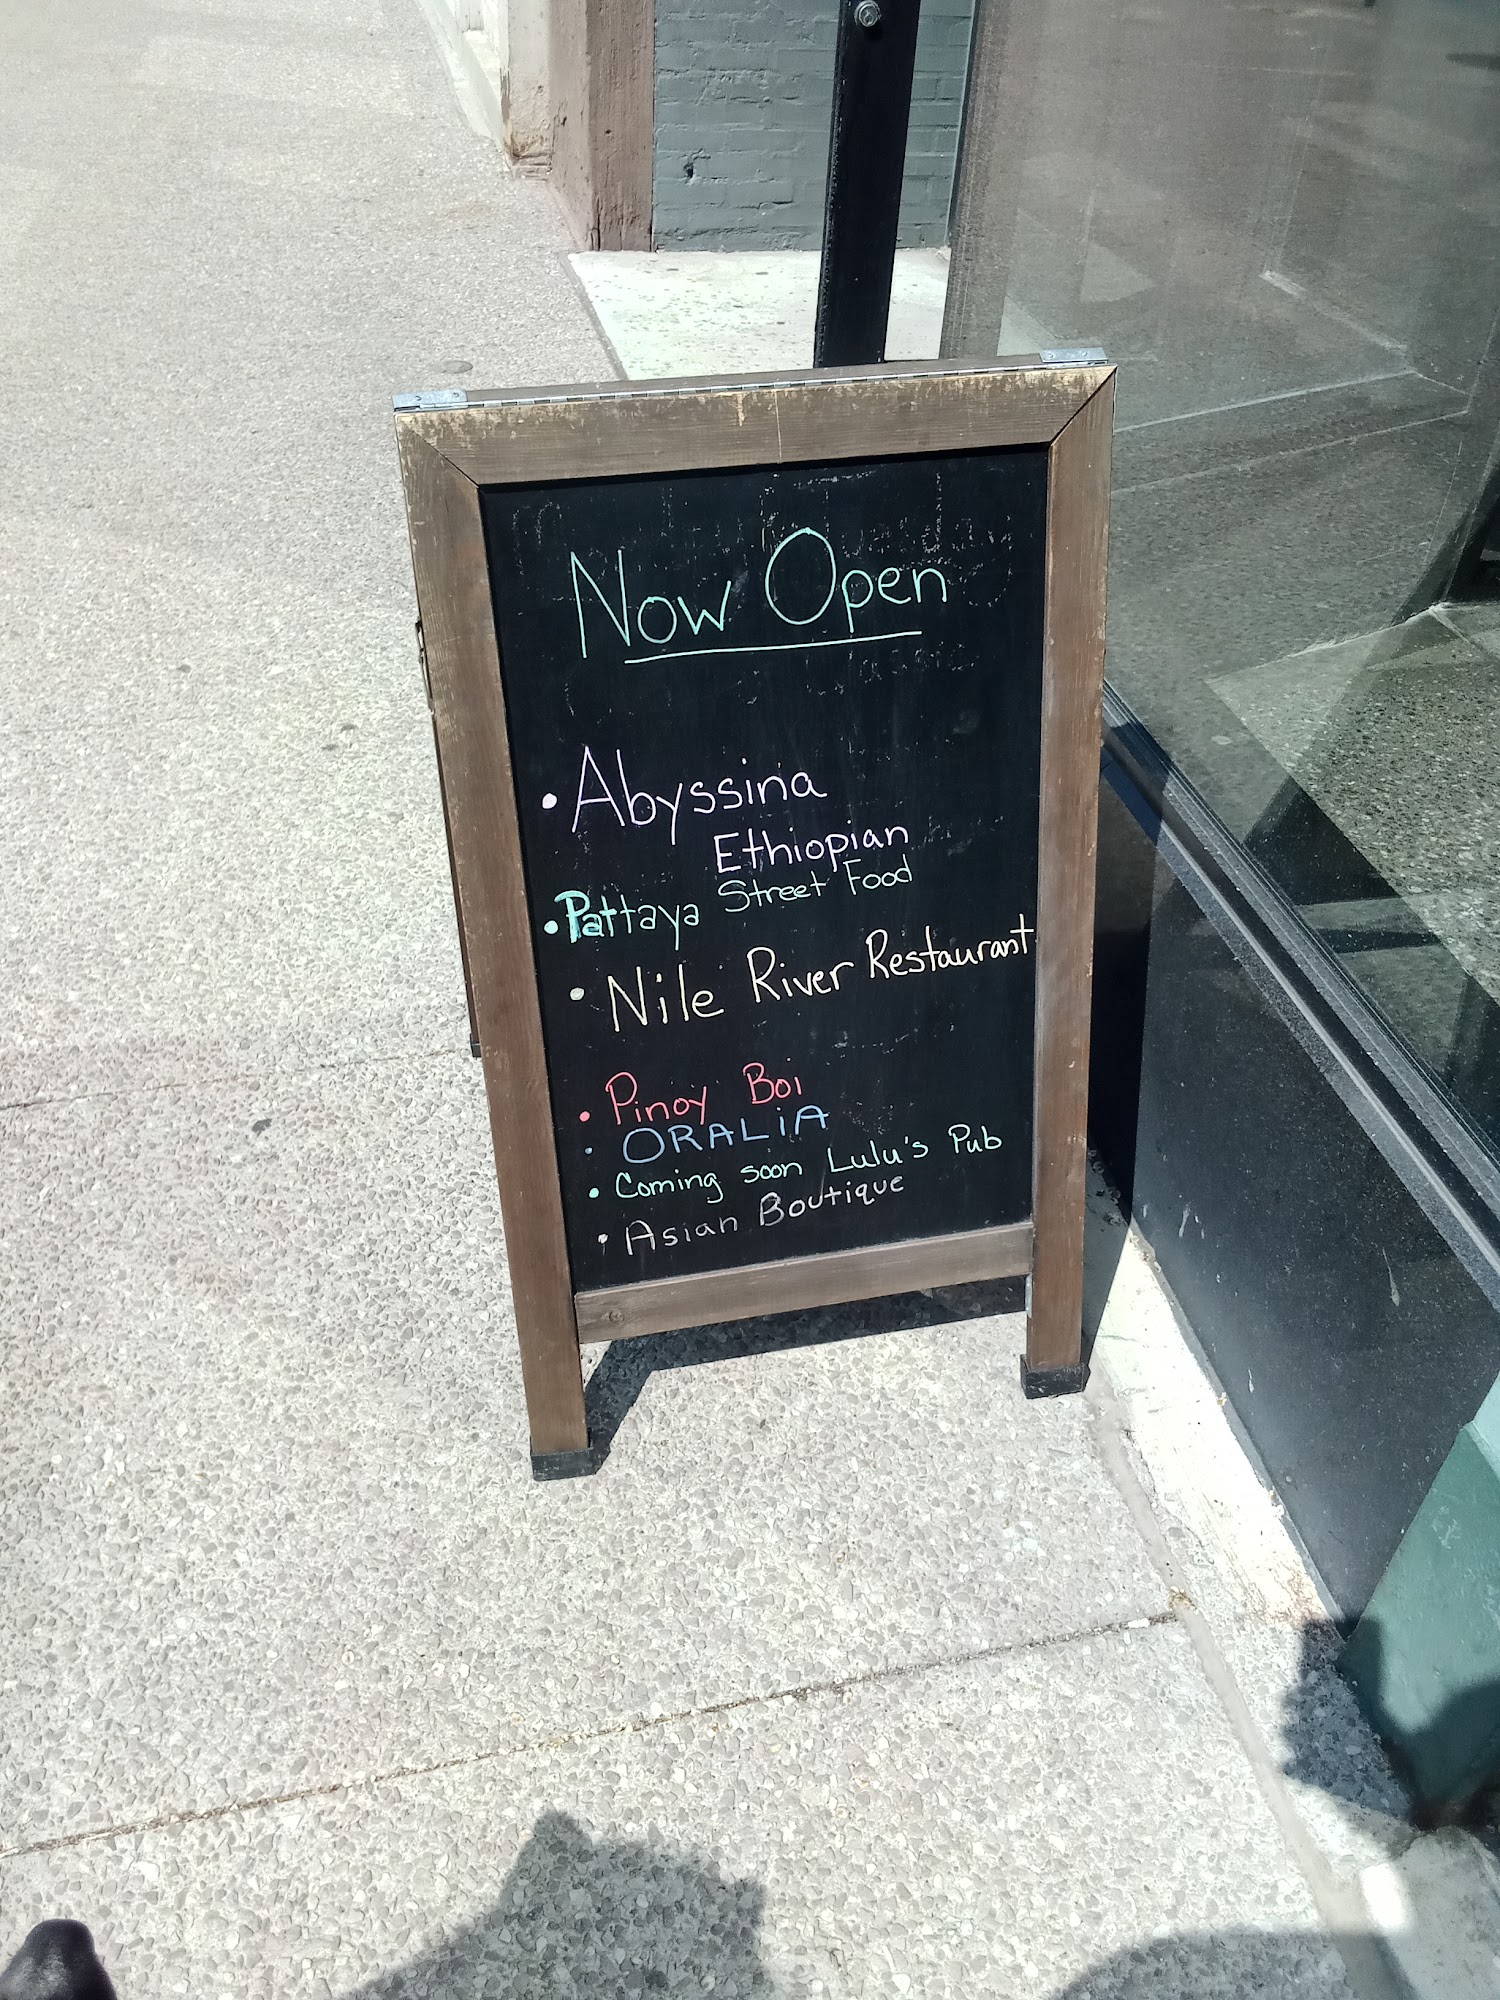 Now Open
• Abyssina
Ethiopian
• Pattaya Street Food
• Nile River Restaurant
• Pinoy Boi
• ORALiA
• Coming soon Lulu's Pub
• Asian Boutique